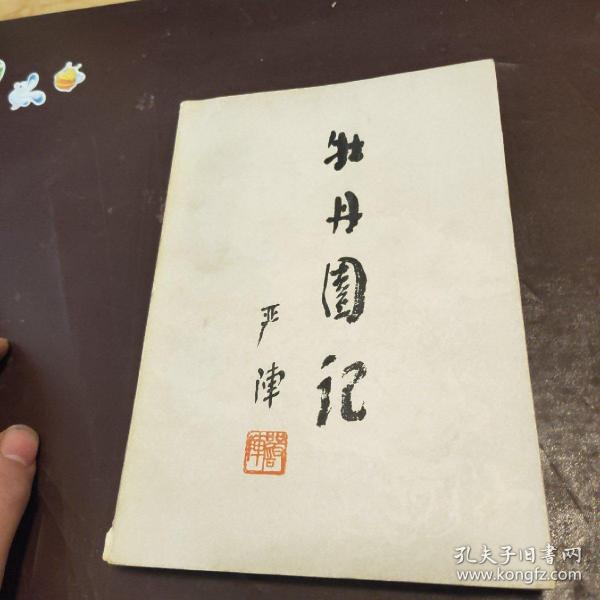 牡丹園记
严陣
孔夫子旧書网
www.kongfz.com